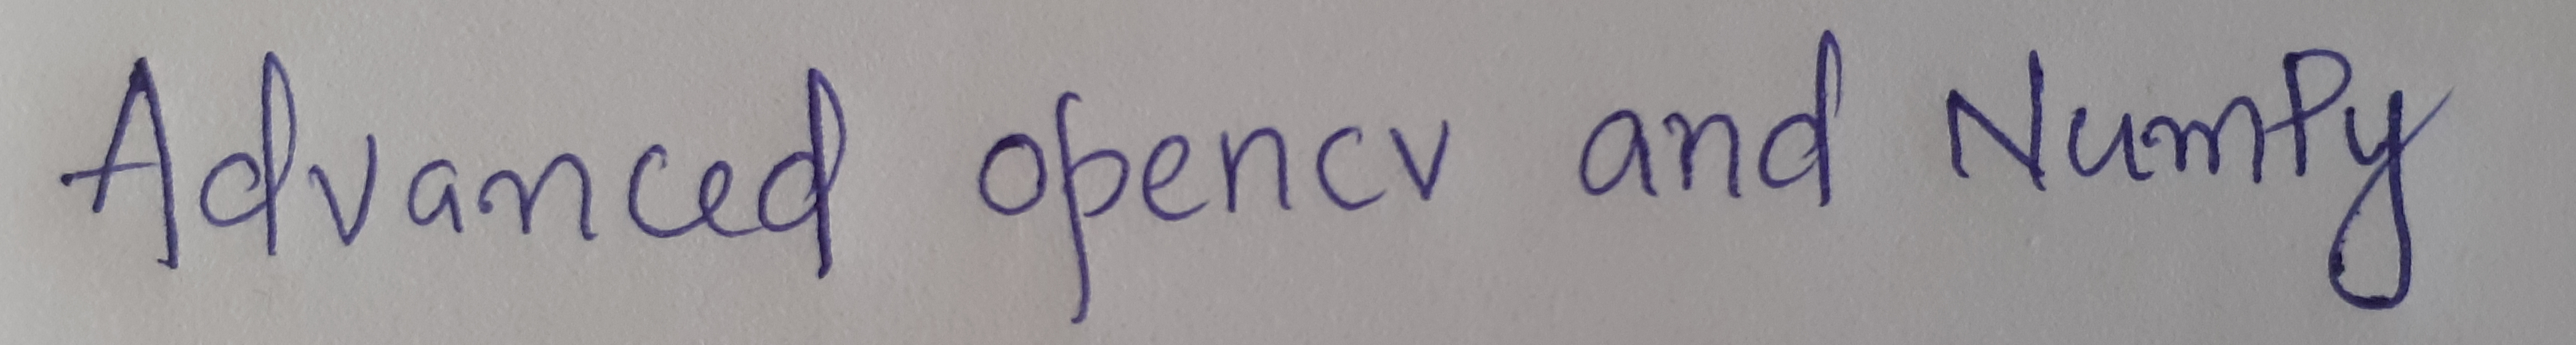 Advanced opencv and NumPy